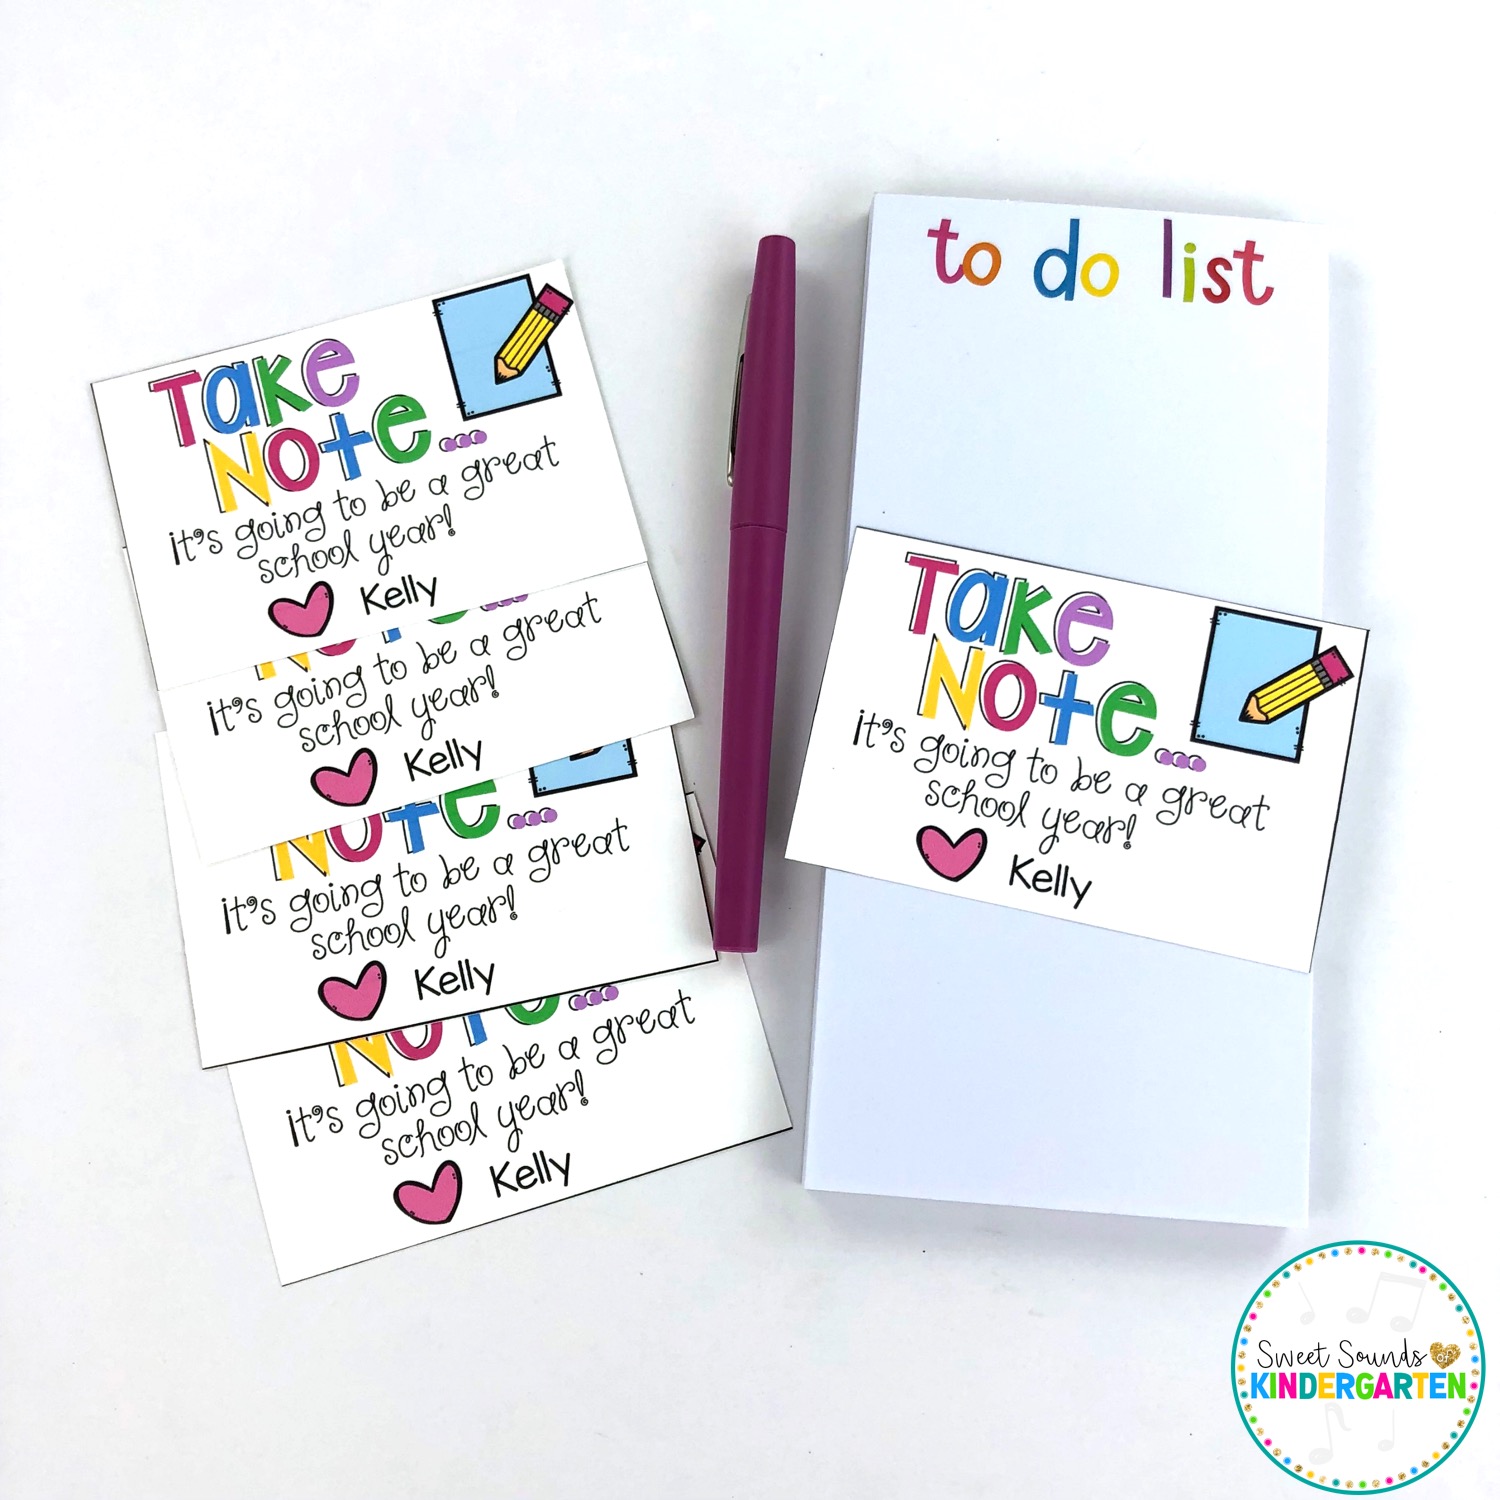 Take
Note...
it's going to be a great
school year!
Kelly
Note...
it's going to be a great
school year!
Kelly
Note...
it's going to be a great
school year!
Kelly
Note...
it's going to be a great
school year!
Kelly
to do list
Take
Note...
it's going to be a great
school year!
Kelly
Sweet Sounds of
KINDERGARTEN